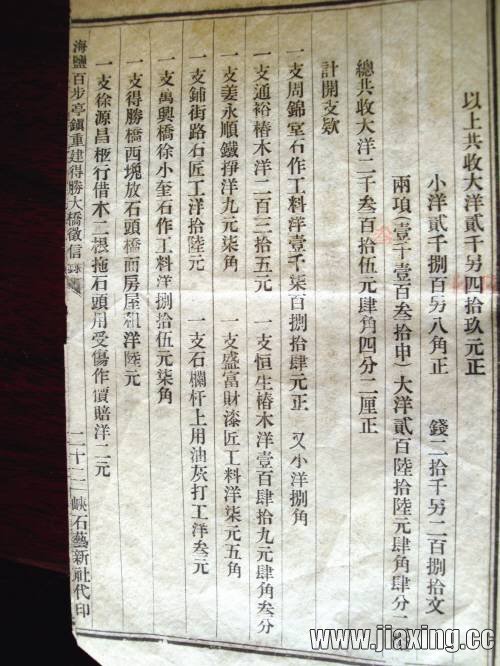 以上共收大洋貳千另四拾玖元正
小洋貳千捌百另八角正 錢二拾千另二百捌拾文
兩項(壹千壹百叁拾申)大洋貳百陸拾陸元肆角肆分二
總共收大洋二千叁百拾伍元肆角四分二厘正
計開支欵
一支周錦堂石作工料洋壹千柒百捌拾肆元正 又小洋捌角
一支通裕樁木洋二百三拾五元 一支恒生樁木洋壹百肆拾九元肆角叁分
一支姜永順鐵掙洋九元柒角 一支盛富財漆匠工料洋柒元五角
一支鋪街路石匠工洋拾陸元 一支石欄杆上用油灰打工洋叁元
一支萬興橋徐小奎石作工料洋捌拾伍元柒角
一支得勝橋西堍放石頭橋面房屋租洋陸元
一支徐源昌板行借木二根拖石頭用受傷作價賠洋二元
海鹽百步亭鎮重建得勝大橋徵信錄 二十二 峽石藝新社代印
www.jiaxing.cc